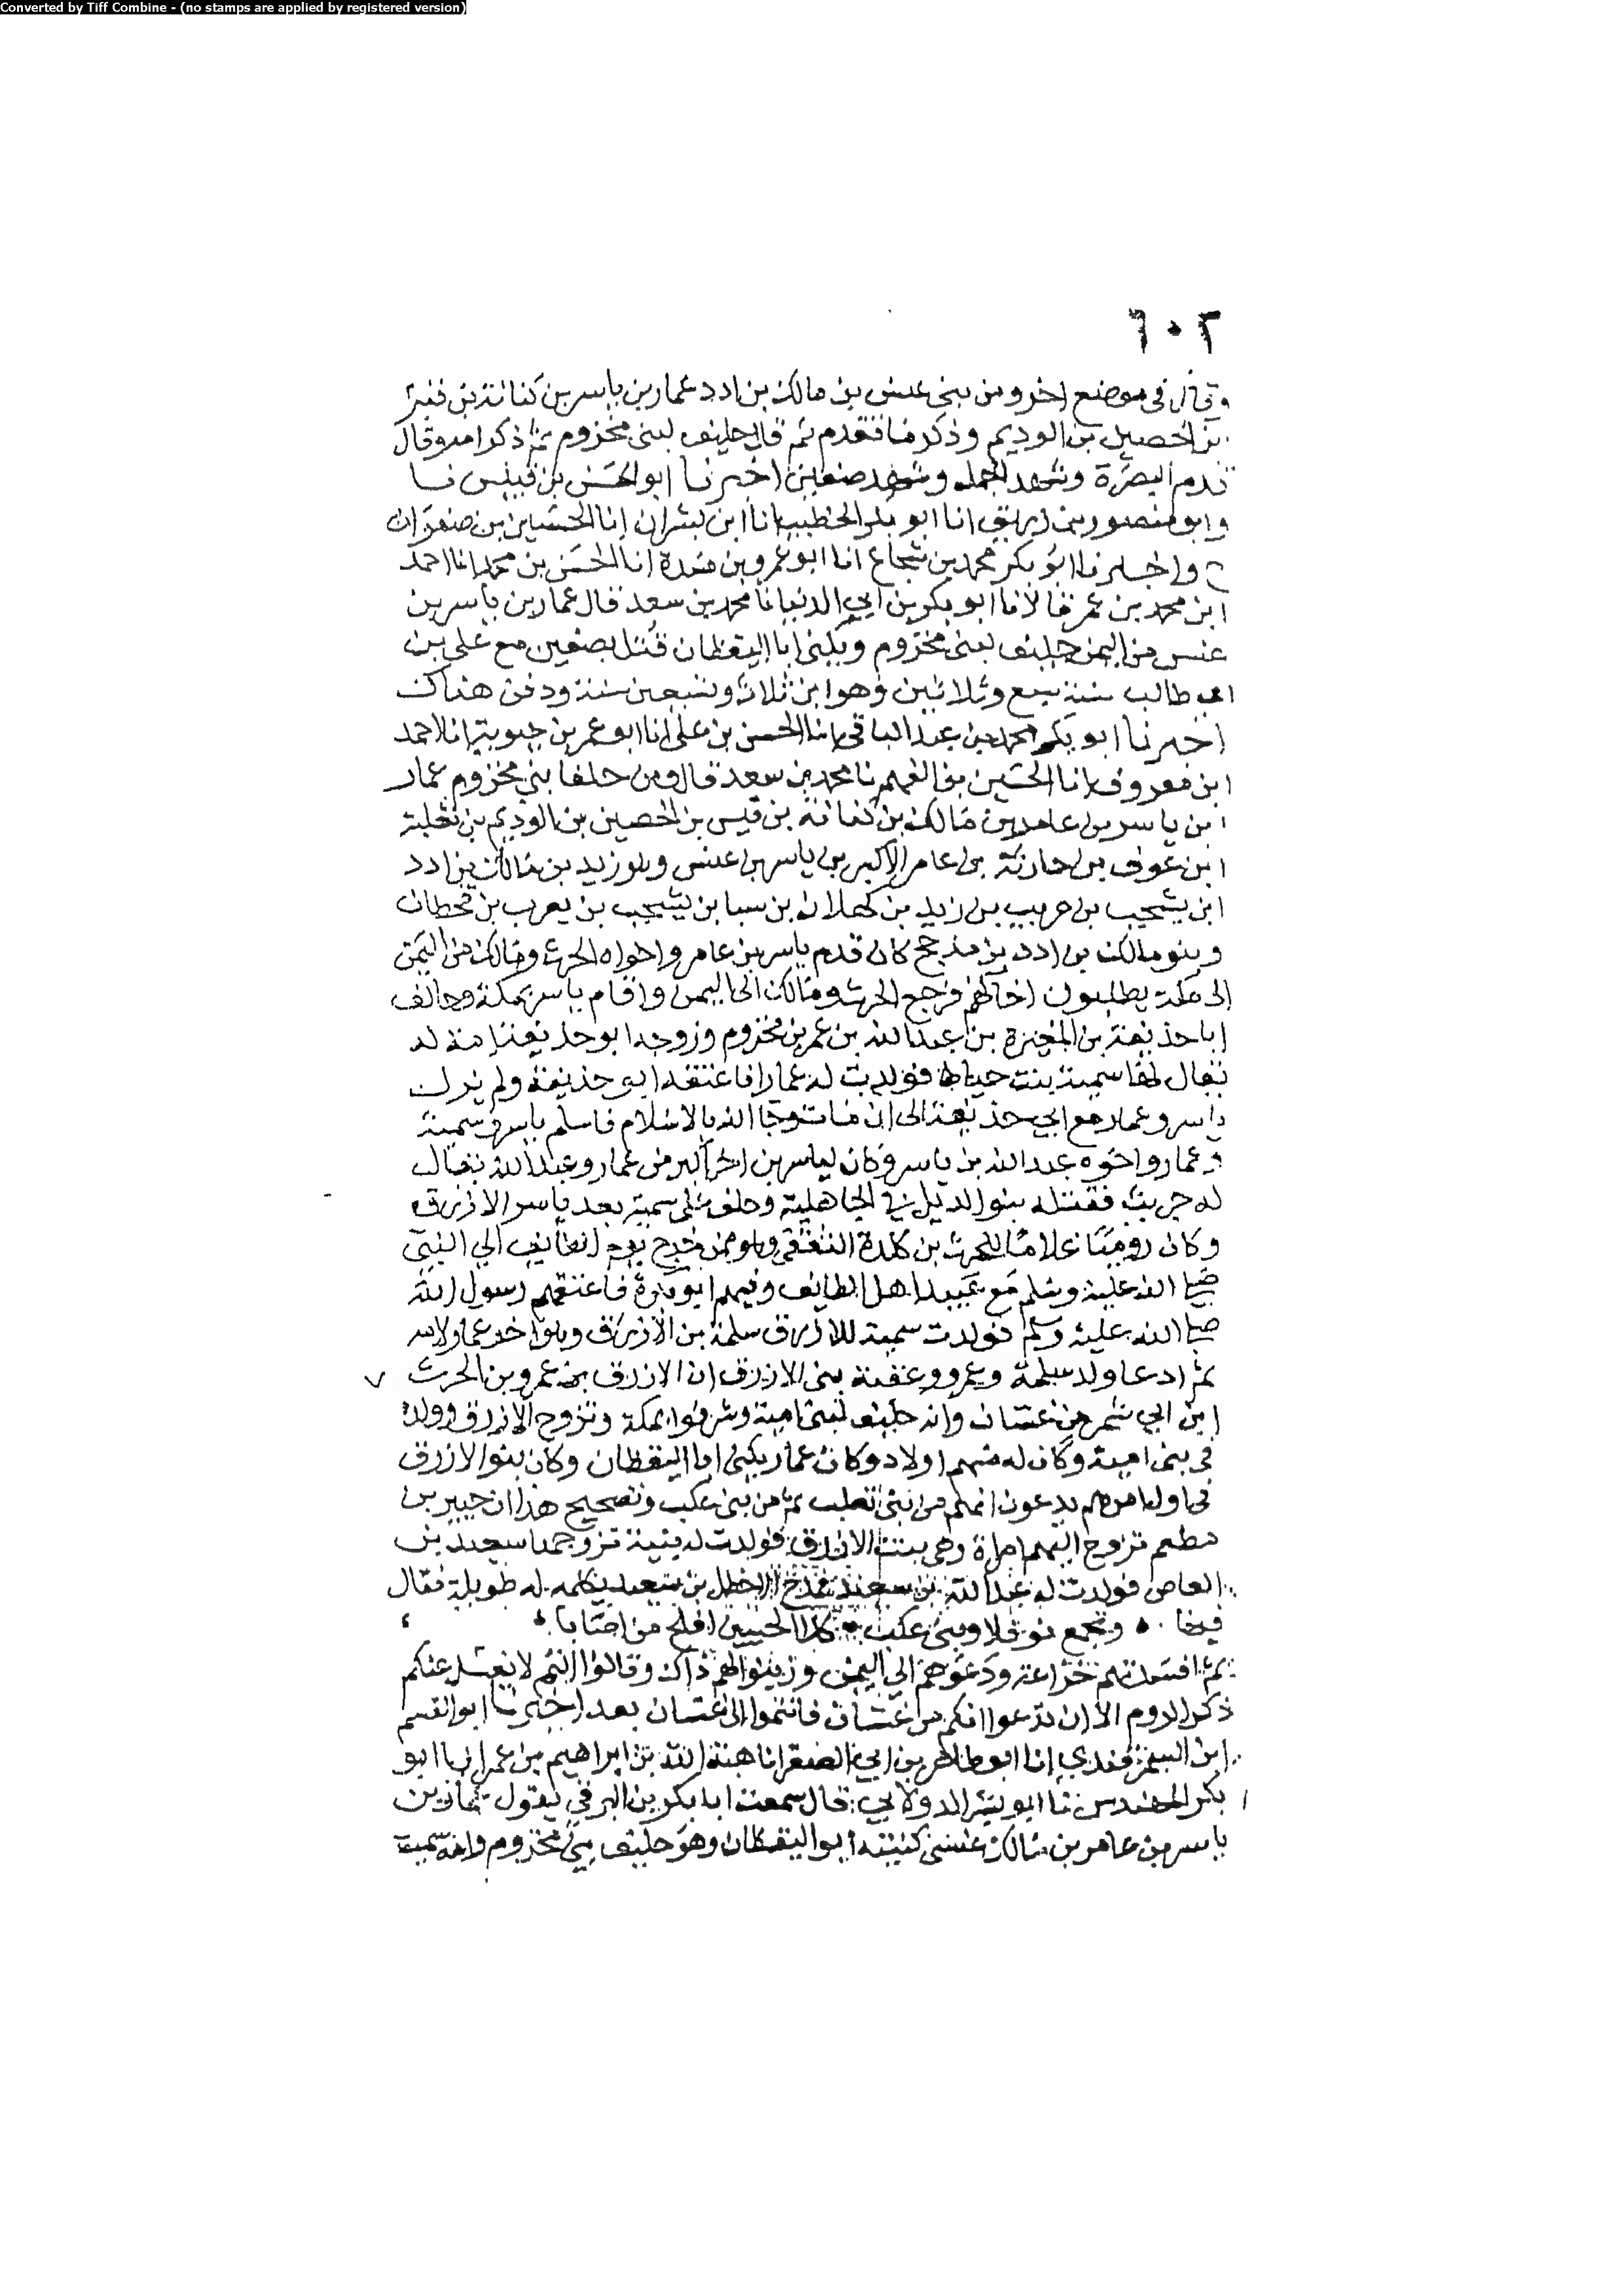 Converted by Tiff Combine - (no stamps are applied by registered version)
٦٠٢
وقال في موضع اخر ومن بني عنس بن مالك بن ادد عمار بن ياسر بن كنانة بن قيس
بن الحصين بن الوديم وذكر ما تقدم ثم قال حليف لبني مخزوم ثم ذكر امه وقال
قدم البصرة وشهد الجمل وشهد صفين اخبرنا ابو الحسن بن قبيس نا
وابو منصور بن زريق انا ابو بكر الخطيب انا ابن بشران انا الحسين بن صفوان
ح واخبرنا ابو بكر محمد بن شجاع انا ابو عمرو بن مندة انا الحسن بن محمد انا احمد
ابن محمد بن عمر قالا نا ابو بكر بن ابي الدنيا نا محمد بن سعد قال عمار بن ياسر بن
عنس من اليمن حليف لبني مخزوم ويكنى ابا اليقظان قتل بصفين مع علي بن
ابي طالب سنة سبع وثلاثين وهو ابن ثلاث وتسعين سنة ودفن هناك
اخبرنا ابو بكر محمد بن عبد الباقي انا الحسن بن علي انا ابو عمر بن حيوية انا احمد
ابن معروف انا الحسين بن الفهم نا محمد بن سعد قال ومن حلفا بني مخزوم عمار
ابن ياسر بن عامر بن مالك بن كنانة بن قيس بن الحصين بن الوديم بن ثعلبة
ابن عوف بن حارثة بن عامر الاكبر بن ياسر بن عنس وهو زيد بن مالك بن ادد
ابن يشجب بن عريب بن زيد بن كهلان بن سبا بن يشجب بن يعرب بن قحطان
وبنو مالك بن ادد بن مذحج كان قدم ياسر بن عامر واخواه الحرث ومالك من اليمن
الى مكة يطلبون اخا لهم فرجع الحرث ومالك الى اليمن واقام ياسر بمكة وحالف
ابا حذيفة بن المغيرة بن عبد الله بن عمر بن مخزوم وزوجه ابو حذيفة امة له
يقال لها سمية بنت خياط فولدت له عمارا فاعتقه ابو حذيفة ولم يزل
ياسر وعمار مع ابي حذيفة الى ان مات وجا الله بالاسلام فاسلم ياسر وسمية
وعمار واخوه عبد الله بن ياسر وكان لياسر بن اخر اكبر من عمار وعبد الله يقال
له حريث فقتله بنو الديل في الجاهلية وخلف على سمية بعد ياسر الازرق
وكان روميا غلاما للحرث بن كلدة الثقفي وهو ممن خرج يوم الطايف الى النبي
صلى الله عليه وسلم مع عبيد اهل الطايف وفيهم ابو بكرة فاعتقهم رسول الله
صلى الله عليه وسلم فولدت سمية للازرق سلمة بن الازرق وهو اخو عمار لامه
ثم ادعا ولد سلمة وعمرو وعقبة بني الازرق ان الازرق بن عمرو بن الحرث
ابن ابي شمر من غسان وانه حليف لبني امية وشرفوا بمكة وتزوج الازرق وولده
في بني امية وكان له منهم اولاد وكان عمار يكنى ابا اليقظان وكان بنو الازرق
في اول امرهم يدعون انهم من بني تغلب ثم من بني عكب وتصحيح هذا ان جبير بن
مطعم تزوج اليهم امراة وهي بنت الازرق فولدت له بنية تزوجها سعيد بن
العاص فولدت له عبد الله بن سعيد فمدح الاخطل بن سعيد بكلمة له طويلة فقال
فيها وتجمع نوفلا وبني عكب كلا الحيين افلح من اصابا
ثم افسدتهم خزاعة ودعوهم الى اليمن وزينوا لهم ذاك وقالوا انتم لا يغسل عنكم
ذكر الروم الا ان تدعوا انكم من غسان فانتموا الى غسان بعد اخبرنا ابو القسم
ابن السمرقندي انا ابو طاهر بن ابي الصقر انا هبة الله بن ابراهيم بن عمر انا ابو
بكر المهندس نا ابو بشر الدولابي قال سمعت ابا بكر بن البرقي يقول عمار بن
ياسر بن عامر بن مالك عنسي كنيته ابو اليقظان وهو حليف بني مخزوم وامه سمية